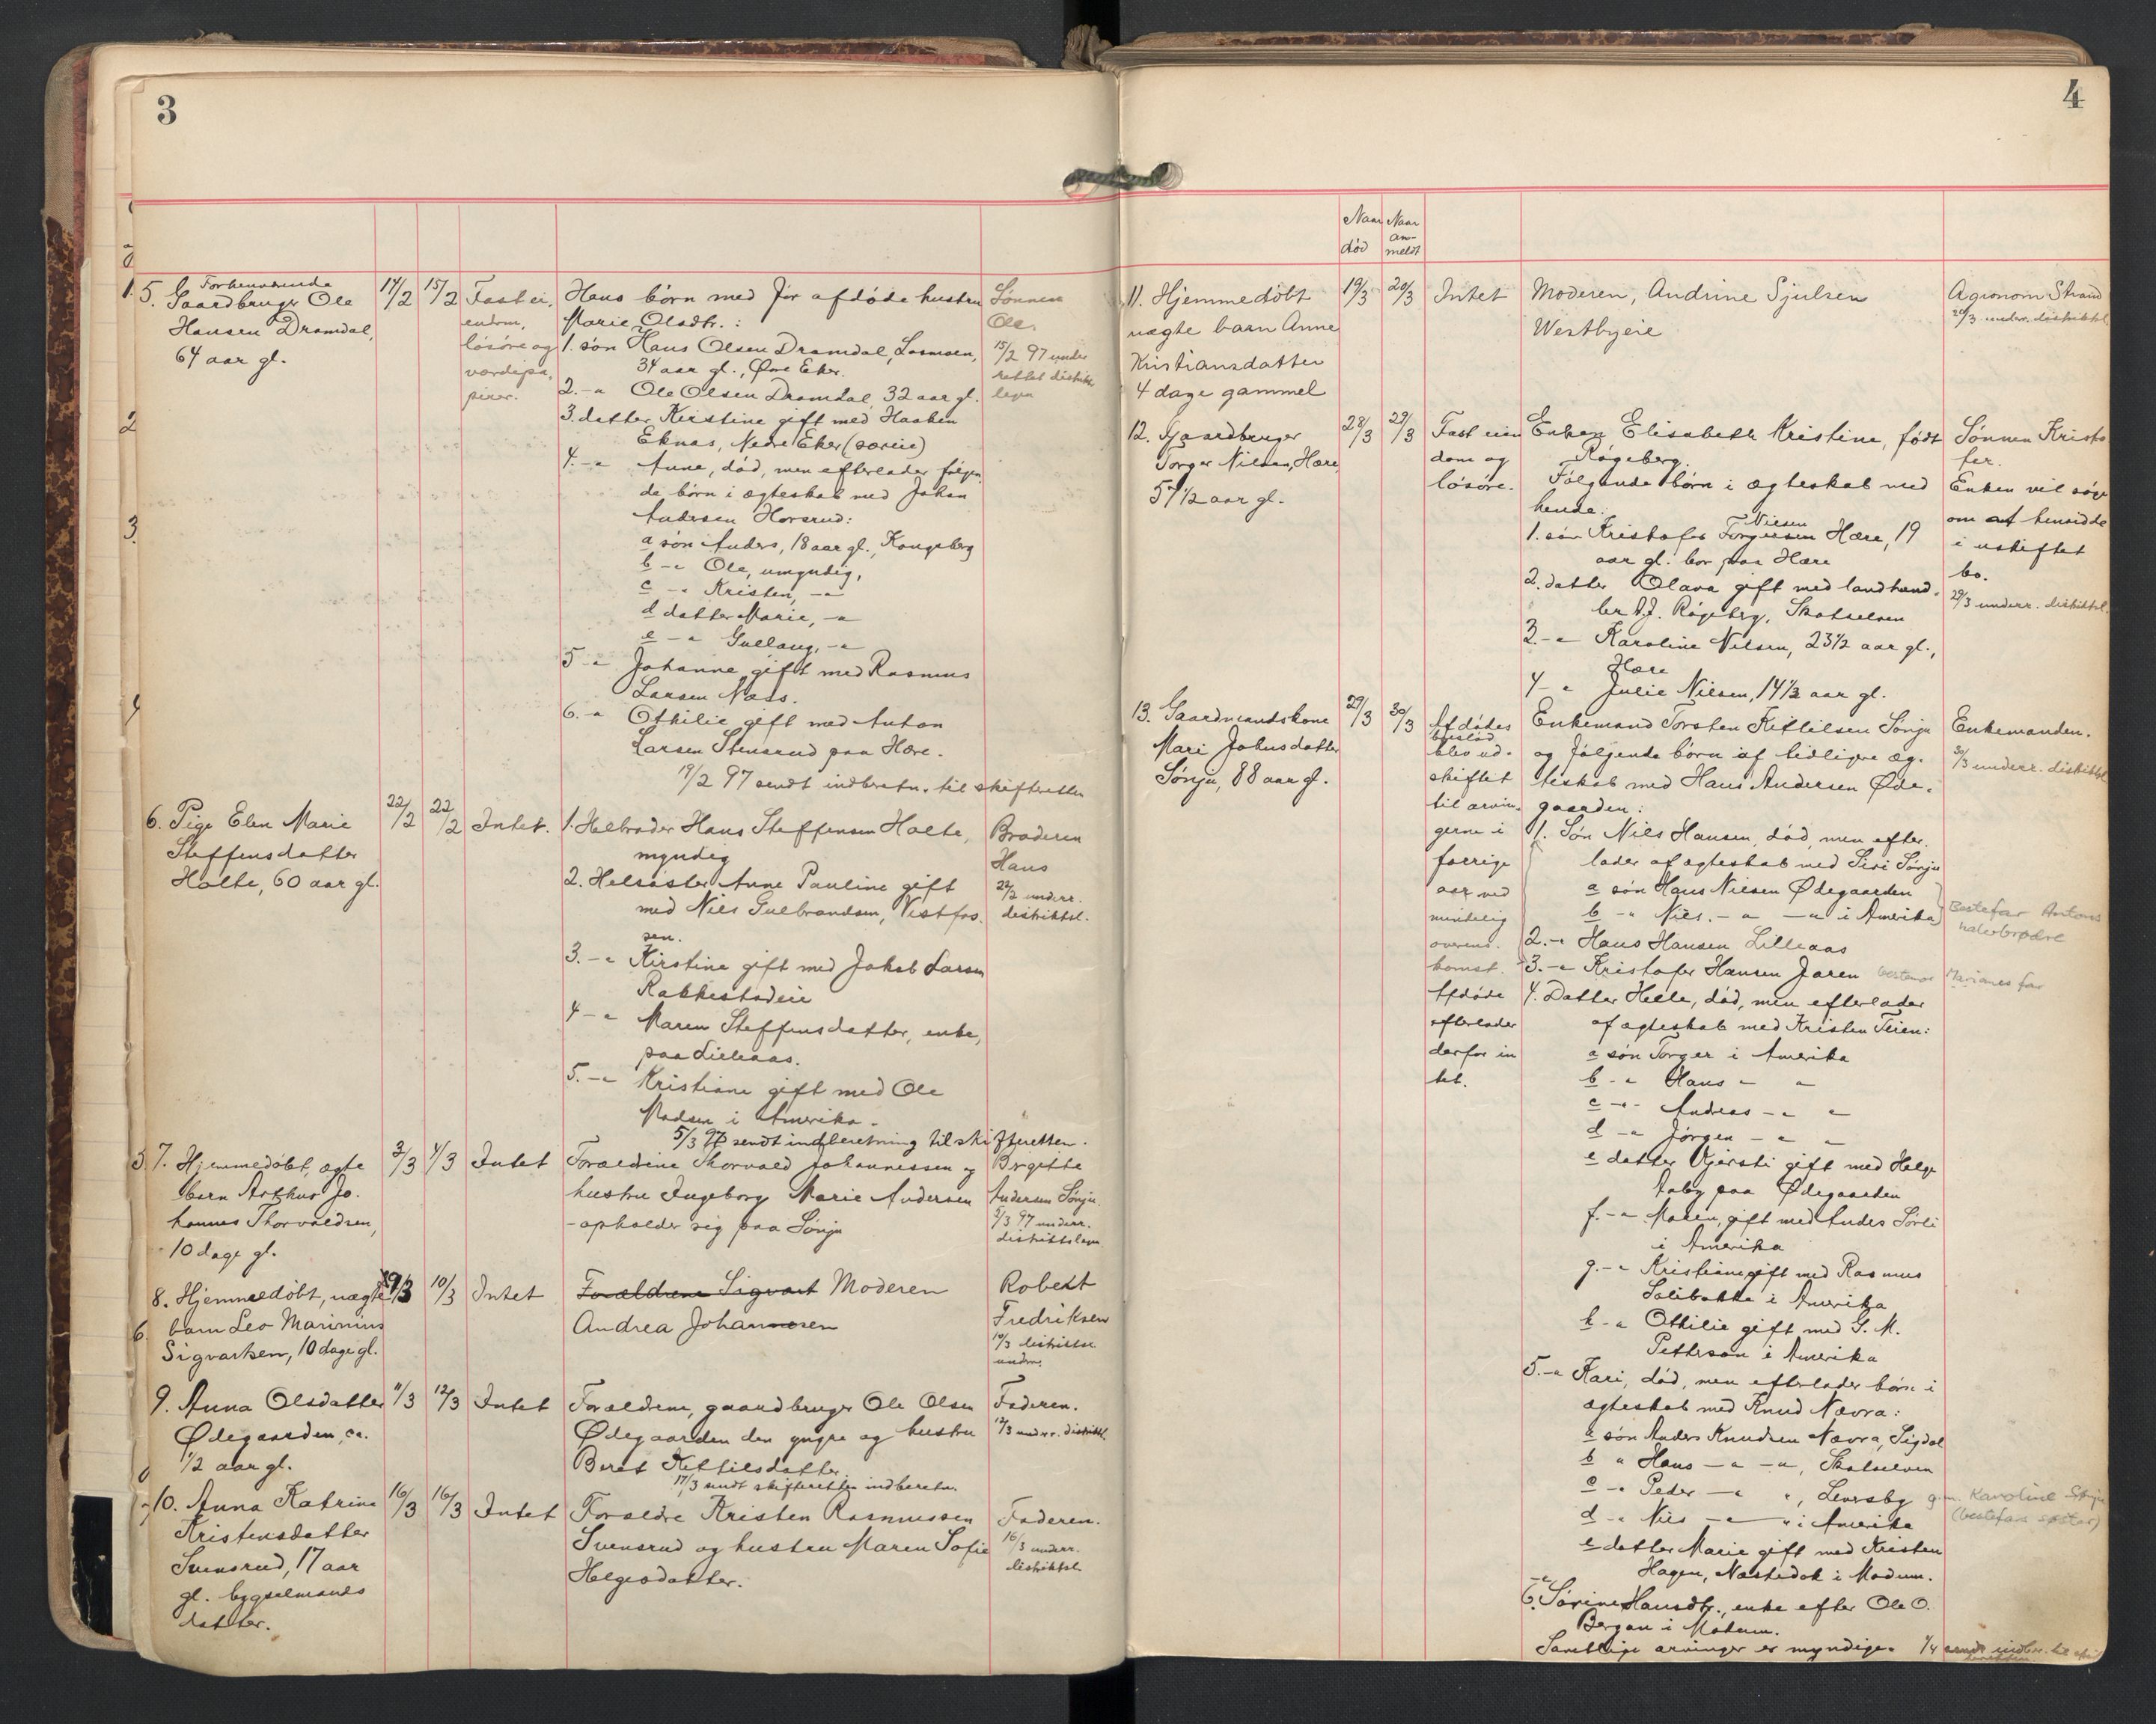 3
5. Forhenværende
Gaardbruger Ole
Hansen Dramdal,
64 aar gl.
14/2
15/2
Fast ei-
endom,
løsøre og
værdipa-
pirer.
Hans børn med før afdøde hustru
Marie Olsdtr.:
1. søn Hans Olsen Dramdal, Losmoen,
34 aar gl., Øvre Eker.
2. -"- Ole Olsen Dramdal 32 aar gl.
3. datter Kirstine gift med Haaken
Eknæs, Nedre Eker (særeie)
4. -"- Anne, død, men efterlader følgen-
de børn i ægteskab med Johan
Andersen Horsrud:
a søn Anders, 18 aar gl., Kongsberg
b -"- Ole, umyndig,
c -"- Kristen, -"-
d datter Marie, -"-
e -"- Gullaug, -"-
5 -"- Johanne gift med Rasmus
Larsen Næss.
6. -"- Othilie gift med Anton
Larsen Stensrud paa Hære.
19/2 97 sendt indberetn. til skifteretten
Sønnen
Ole.
15/2 97 under-
rettet distrikts-
legen
6. Pige Elen Marie
Steffensdatter
Holte, 60 aar gl.
22/2
22/2
Intet.
1. Helbroder Hans Steffensen Holte,
myndig
2. Helsøster Anne Pauline gift
med Niels Gulbrandsen, Vestfos-
sen.
3. -"- Kirstine gift med Jakob Larsen
Rakkestadeie
4 -"- Maren Steffensdatter, enke,
paa Lilleaas.
5. -"- Kristiane gift med Ole
Madsen i Amerika.
5/3 97 sendt indberetning til skifteretten.
Broderen
Hans
22/2 underr.
distriktsl.
7. Hjemmedøbt, ægte
barn Arthur Jo-
hannes Thorvaldsen,
10 dage gl.
3/3
4/3
Intet
Forældrene Thorvald Johannessen og
hustru Ingeborg Marie Andersen
- opholder sig paa Sønju
Birgitte
Andersen Sønju.
5/3 97 underr.
distriktslegen
8. Hjemmedøbt, uægte
barn Leo Marinius
Sigvartsen, 10 dage gl.
9/3
10/3
Intet
Forældrene Sigvart Moderen
Andrea Johannesen
Robert
Fredriksen
10/3 distriktsl.
underr.
9. Anna Olsdatter
Ødegaarden, ca.
1/2 aar gl.
11/3
12/3
Intet
Forældrene, gaardbruger Ole Olsen
Ødegaarden den yngre og hustru
Beret Kittilsdatter.
17/3 sendt skifteretten indberetn.
Faderen.
12/3 underr. distriktsl.
10. Anna Katrine
Kristensdatter
Svensrud, 17 aar
gl. bygselmands
datter.
16/3
16/3
Intet
Forældre Kristen Rasmussen
Svensrud og hustru Maren Sofie
Helgesdatter.
Faderen.
16/3 underr.
distriktsl.
4
Naar
død
Naar
an-
meldt
11. Hjemmedøbt
uægte barn Anne
Kristiansdatter
4 dage gammel
19/3
20/3
Intet
Moderen, Andrine Sjulsen
Westbyeie
Agronom Strand
20/3 underr. distriktsl.
12. Gaardbruger
Torger Nilsen, Hære,
57 1/2 aar gl.
28/3
29/3
Fast eien-
dom og
løsøre.
Enken Elisabeth Kristine, født
Røgeberg.
Følgende børn i ægteskab med
hende:
1. søn Kristofer Torgersen Nilsen Hære, 19
aar gl. bor paa Hære
2. datter Olava gift med landhand-
ler A. J. Røgeberg, Skotselven
3. -"- Karoline Nilsen, 23 1/2 aar gl.,
Hære
4 -"- Julie Nilsen, 14 1/2 aar gl.
Sønnen Kristo-
fer.
Enken vil søge
om at hensidde
i uskiftet
bo.
29/3 underr. distriktsl.
13. Gaardmandskone
Mari Johnsdatter
Sønju, 88 aar gl.
29/3
30/3
Afdødes
boslod
blev ud-
skiftet
til arvin-
gerne i
forrige
aar ved
mindelig
overens-
komst.
Afdøde
efterlader
derfor in-
tet.
Enkemand Torsten Kittilsen Sønju
og følgende børn af tidligere æg-
teskab med Hans Andersen Øde-
gaarden:
1. Søn Nils Hansen, død, men efter-
lader af ægteskab med Siri Sønju
a søn Hans Nilsen Ødegaarden
b -"- Nils -"- -"- i Amerika
2. -"- Hans Hansen Lilleaas
3. -"- Kristofer Hansen Jaren bestemor Marianes far
4. Datter Helle, død, men efterlader
af ægteskab med Kristen Teien:
a søn Torger i Amerika
b -"- Hans " "
c -"- Andreas -"- "
d -"- Jørgen -"- "
e datter Kjersti gift med Helge
Aaby paa Ødegaarden
f. -"- Maren, gift med Anders Sørli
i Amerika
g. -"- Kristiane gift med Rasmus
Solibakke i Amerika
h -"- Othilie gift med G. M.
Petterson i Amerika
5. -"- Kari, død, men efterlader børn i
ægteskab med Knud Nævra:
a søn Anders Knudsen Nævra, Sigdal
b " Hans -"- -"-, Skotselven
c -"- Peder -"- ", Leversby g.m. Karoline Sønju
d -"- Nils -"- " i Amerika (bestefars søster)
e datter Marie gift med Kristen
Hagen, Næstedok i Modum.
6. -"- Sørine Hansdtr., enke efter Ole O.
Bergan i Modum.
Samtlige arvinger er myndige. 1/4 sendt indber. til skif-
teretten.
Enkemanden.
30/3 underr. distriktsl.
Bestefar Antons
halvbrødre